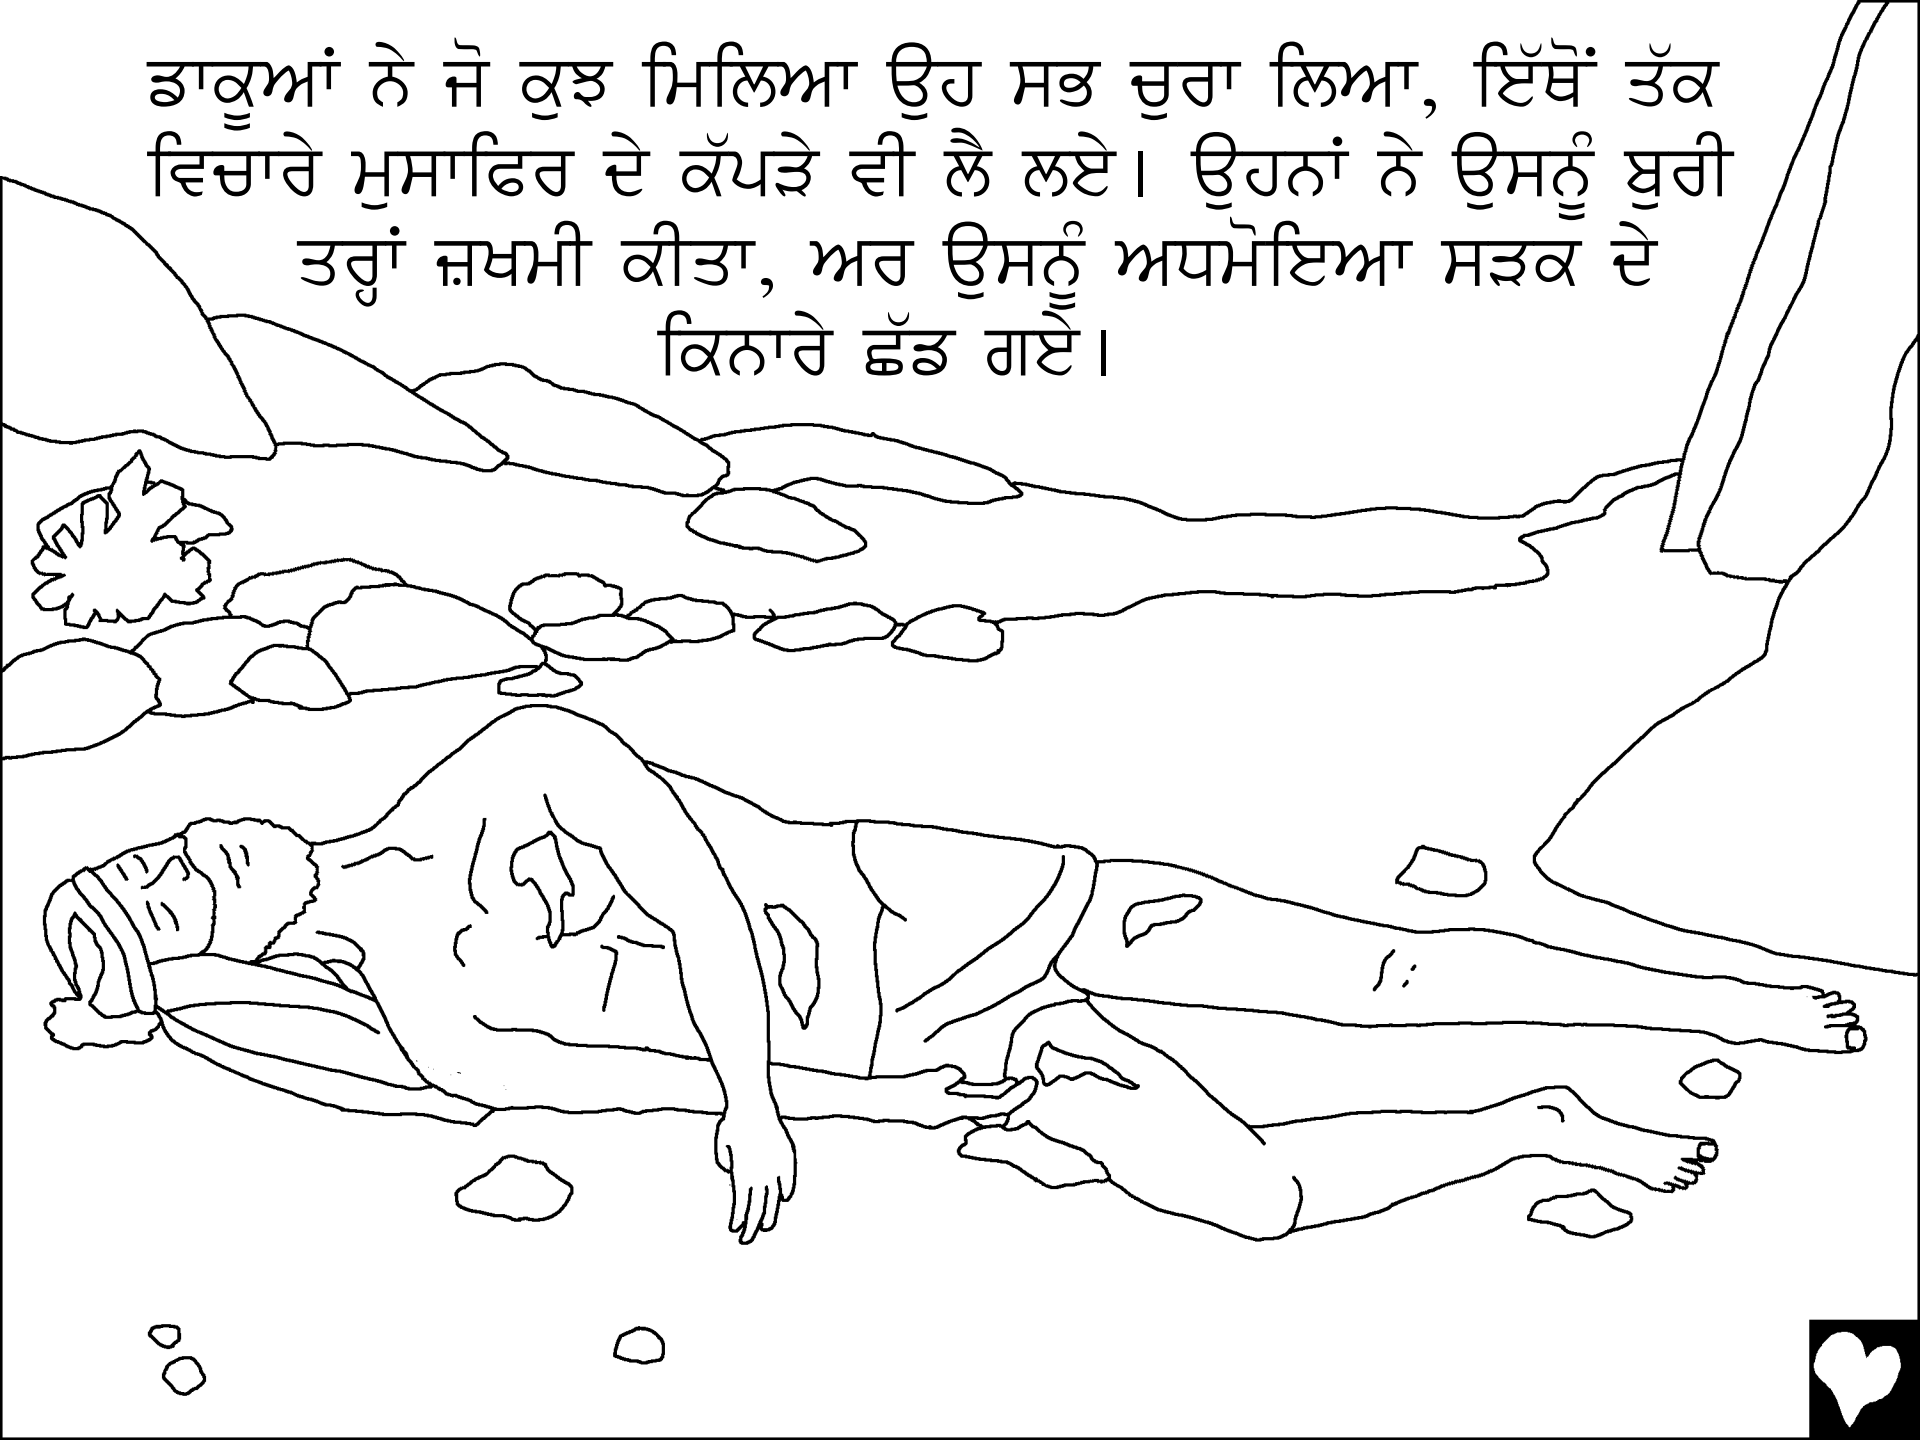 ਡਾਕੂਆਂ ਨੇ ਜੋ ਕੁਝ ਮਿਲਿਆ ਉਹ ਸਭ ਚੁਰਾ ਲਿਆ, ਇੱਥੋਂ ਤੱਕ
ਵਿਚਾਰੇ ਮੁਸਾਫਿਰ ਦੇ ਕੱਪੜੇ ਵੀ ਲੈ ਲਏ। ਉਹਨਾਂ ਨੇ ਉਸਨੂੰ ਬੁਰੀ
ਤਰ੍ਹਾਂ ਜ਼ਖਮੀ ਕੀਤਾ, ਅਰ ਉਸਨੂੰ ਅਧਮੋਇਆ ਸੜਕ ਦੇ
ਕਿਨਾਰੇ ਛੱਡ ਗਏ।